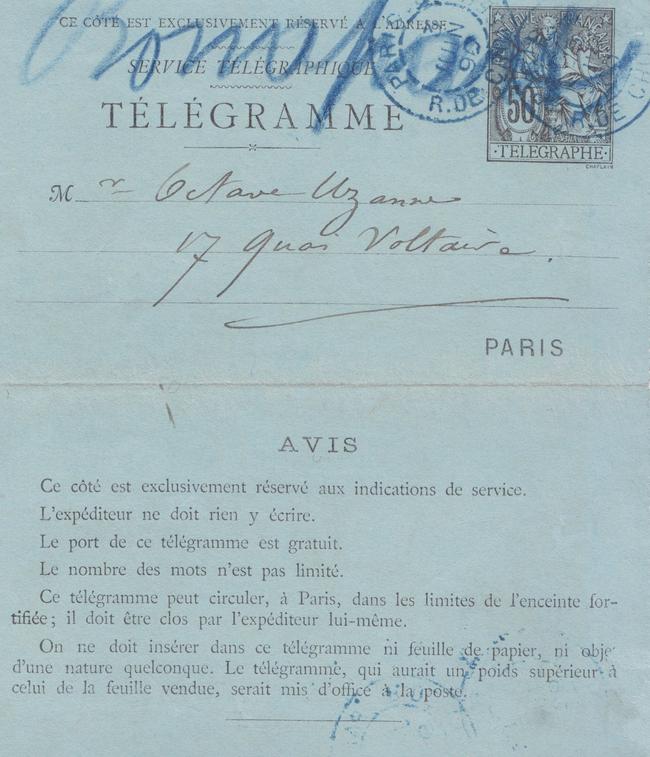 CE CÔTÉ EST EXCLUSIVEMENT RÉSERVÉ A L'ADRESSE
SERVICE TÉLÉGRAPHIQUE
TÉLÉGRAMME
RÉPUBLIQUE FRANÇAISE
50
·TELEGRAPHE·
CHAPLAIN
PARIS
R. DE
93
M r Octave Uzanne
17 quai Voltaire.
PARIS
AVIS
Ce côté est exclusivement réservé aux indications de service.
L'expéditeur ne doit rien y écrire.
Le port de ce télégramme est gratuit.
Le nombre des mots n'est pas limité.
Ce télégramme peut circuler, à Paris, dans les limites de l'enceinte for-
tifiée; il doit être clos par l'expéditeur lui-même.
On ne doit insérer dans ce télégramme ni feuille de papier, ni obje
d'une nature quelconque. Le télégramme, qui aurait un poids supérieur à
celui de la feuille vendue, serait mis d'office à la poste.